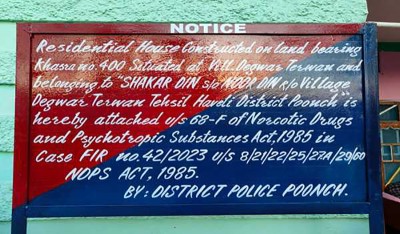 NOTICE
Residential House Constructed on land bearing
Khasra no. 400 Situated at Vill. Degwar Terwan and
belonging to "SHAKAR DIN S/o NOOR DIN R/o Village
Degwar Terwan Tehsil Haveli District Poonch is
hereby attached u/s 68-F of Norcotic Drugs
and Psychotropic Substances Act, 1985 in
case FIR no. 42/2023 U/S 8/21/22/25/27A/29/60
NDPS ACT, 1985.
BY: DISTRICT POLICE POONCH.